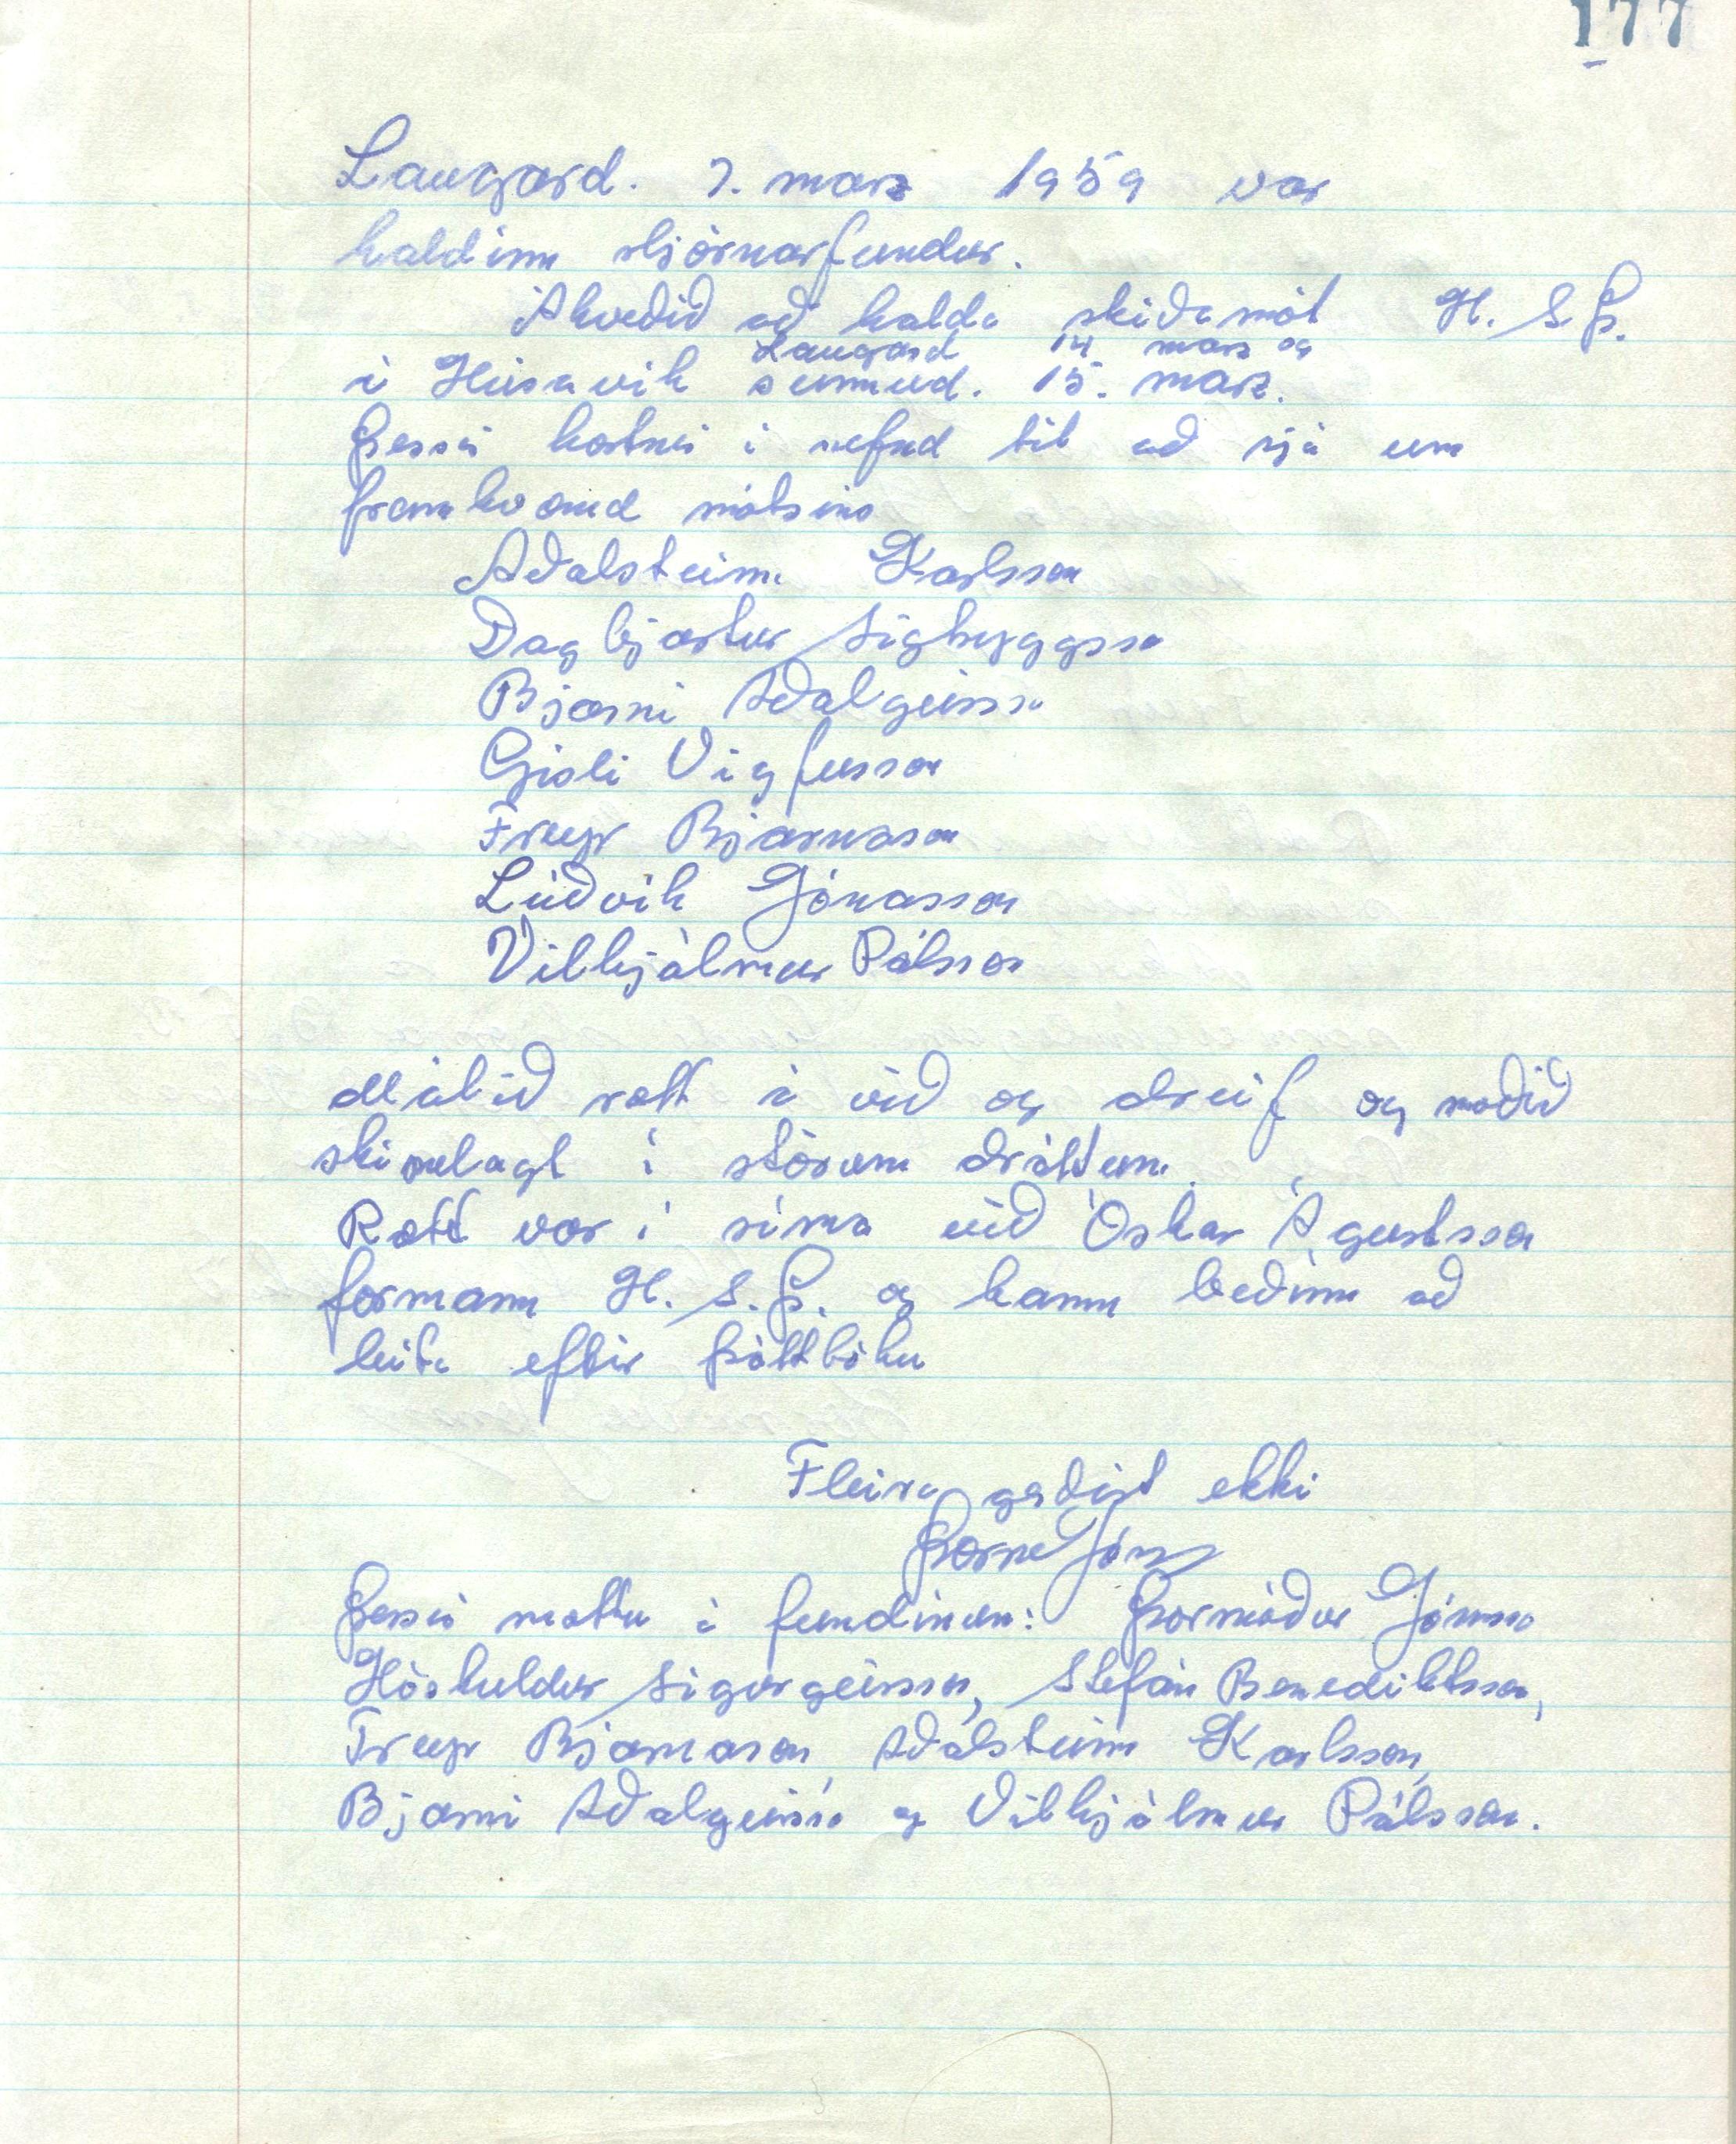 177
Laugard. 7. marz 1959 var
haldinn stjórnarfundur.
Ákveðið að halda skíðamót H. S. Þ.
Laugard 14. marz og
í Húsavík sunnud. 15. marz.
Þessir kostnir í nefnd til að sjá um
framkvæmd mótsins
Aðalsteinn Karlsson
Dagbjartur Sigtryggsson
Bjarni Aðalgeirsson
Gísli Vigfússon
Freyr Bjarnason
Lúðvík Jónasson
Vilhjálmur Pálsson
Málið rætt á víð og dreif og niðið
skipulagt í stórum dráttum.
Rætt var í síma við Óskar Ágústsson
formann H. S. Þ. og hann beðinn að
leita eftir þátttöku
Fleira gerðist ekki
Þorm Jóns
Þessir mættu á fundinum: Þormóður Jónsson
Höskuldur Sigurgeirsson, Stefán Benediktsson,
Freyr Bjarnason, Aðalsteinn Karlsson,
Bjarni Aðalgeirsson og Vilhjálmur Pálsson.